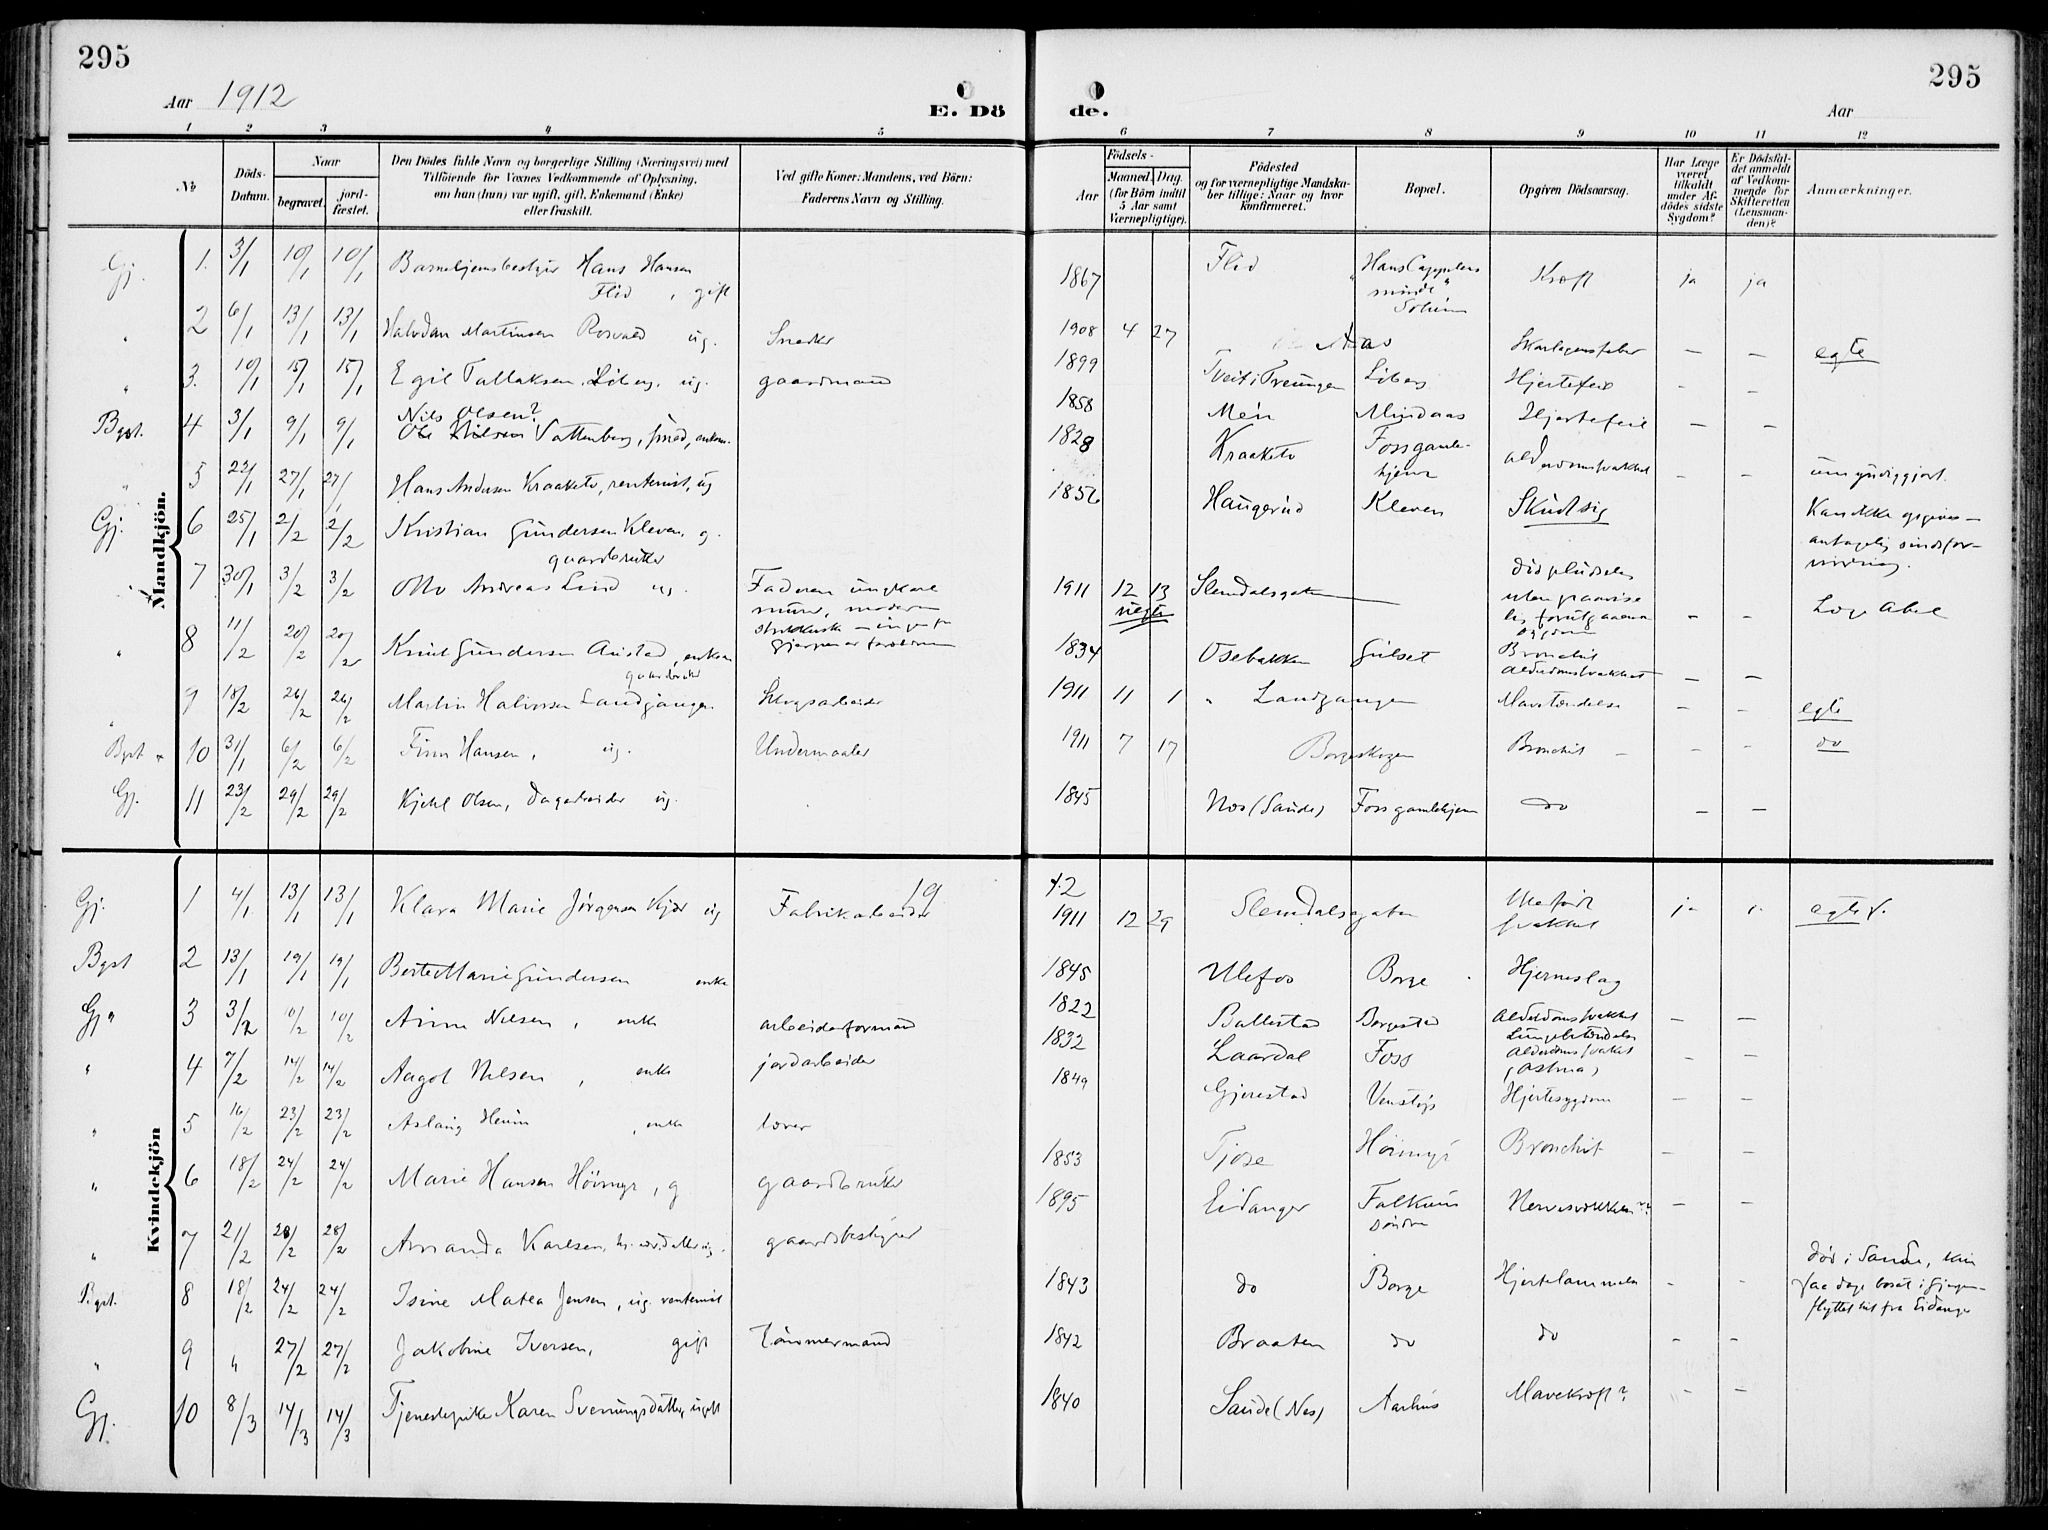 295
295
Aar 1912
E. Dö
de.
Aar
1 2 3 4 5 6 7 8 9 10 11 12
№
Döds-
Datum.
Naar
begravet.
jord-
fæstet.
Den Dödes fulde Navn og borgerlige Stilling (Næringsvei) med
Tilföiende for Voxnes Vedkommende af Oplysning,
om han (hun) var ugift, gift, Enkemand (Enke)
eller fraskilt.
Ved gifte Koner: Mandens, ved Börn:
Faderens Navn og Stilling.
Födsels-
Aar
Maaned. Dag.
(for Börn indtil
5 Aar samt
Værnepligtige).
Födested
og for værnepligtige Mandska-
ber tillige: Naar og hvor
konfirmeret.
Bopæl.
Opgiven Dödsaarsag.
Har Læge
været
tilkaldt
under Af-
dödes sidste
Sygdom?
Er Dödsfal-
det anmeldt
af Vedkom-
mende for
Skifteretten
(Lensman-
den)?
Anmærkninger.
Mandkjön.
Gj. 1. 3/1 10/1 10/1 Barnehjemsbestyrer Hans Hansen
Flid, gift
1867 Flid "Hans Cappelens
minde"
Solum Kræft ja ja
" 2 6/1 13/1 13/1 Halvdan Martinsen Rosvald ug. Snedker 1908 4 27 Aas Skarlagensfeber — — egte
" 3. 10/1 15/1 15/1 Egil Tallaksen Liberg, ug. gaardmand 1899 Tveit i Treungen Liberg Hjertefeil —
Bgst. 4 3/1 9/1 9/1 Nils Olsen?
Ole Nilsen Vattenberg, smed, enkem. 1858 Mén Mindaas Hjertefeil — —
" 5 22/1 27/1 27/1 Hans Andersen Kraaketo, rentenist, ug 1828 Kraaketo Fossgamle-
hjem alderdomssvakhet — — umyndiggjort.
Gj. 6 25/1 2/2 2/2 Kristian Gundersen Kleven, g.
gaardbruker 1856 Haugerud Kleven Skudt sig Kan ikke opgives —
antagelig sindsfor-
virring.
7 30/1 3/2 3/2 Otto Andreas Lund ug. Faderen ungkarl
1911 12 13
uegte Slemdalsgaten död pludselig
uten paavise-
lig forutgaaende
sygdom — — Lage Abel
" 8 11/2 20/2 20/2 Knut Gundersen Austad, enkem
gaardbruker 1834 Osebakken Gulset Bronchit
alderdomssvakhet — —
" 9 18/2 26/2 26/2 Martin Halvorsen Landgangen Skogsarbeider 1911 11 1 " Landgangen Mavebetændelse — — egte
Bgst " 10 31/1 6/2 6/2 Finn Hansen, ug. Undermaaler 1911 7 17 Borgeskogen Bronchit — — do
Gj. 11 23/2 29/2 29/2 Kjetil Olsen, Dagarbeider ug. 1845 Nes (Saude) Fossgamlehjem do — —
Kvindekjön
19 12
Gj. 1 4/1 13/1 13/1 Klara Marie Jörgensen Kjær ug Fabrikarbeider 1911 12 29 Slemdalsgaten Medfödt
svakhet ja egte
Bgst 2 13/1 19/1 19/1 Berte Marie Gundersen enke 1845 Ulefos Borge Hjerneslag
Gj " 3 3/2 10/2 10/2 Anne Nilsen, enke arbeiderformand 1822 Ballestad Borgestad Alderdomssvakhet — —
" 4 7/2 14/2 14/2 Aagot Nilsen, enke jordarbeider 1832 Laardal Foss Lungebetændelse
alderdomssvakhet
(astma) — —
" 5 16/2 23/2 23/2 Aslaug Heum, enke lærer 1849 Gjerestad Venstöp Hjertesygdom — —
" 6 18/2 24/2 24/2 Marie Hansen Höimyr, g gaardbruker 1853 Tjose Höimyr Bronchit — —
" 7 21/2 28/2 28/2 Amanda Karlsen, ug. gaardsbestyrer 1895 Eidanger Falkum
söndre — — död i Sande, kun
faa dage bosat i Gjerpen
flyttet hit fra Eidanger
Bgst. 8 18/2 24/2 24/2 Isine Matea Jensen, ug. rentenist 1843 do Borge Hjertelammelse — —
" 9 " 27/2 27/2 Jakobine Iversen, gift Tömmermand 1842 Braaten do do — —
Gj. 10 8/3 14/3 14/3 Tjenestepike Karen Svenungsdatter, ugift 1840 Saude (Nes) Aarhus Mavekræft? — —